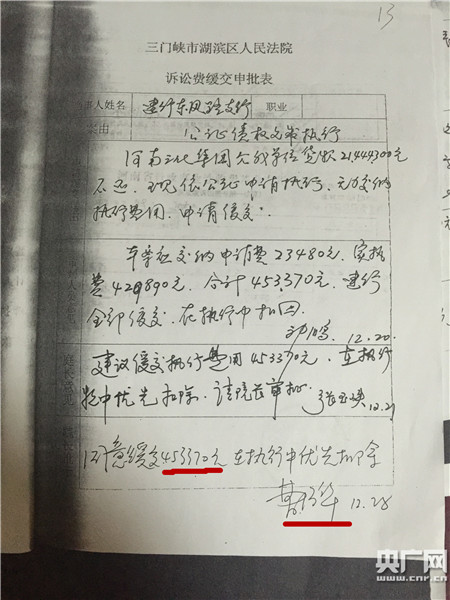 13
三门峡市湖滨区人民法院
诉讼费缓交申批表
事人姓名 建行东风路支行 职业
案由 公证债权文书执行
河南三化集团欠我单位贷款21444300元
不还,现依公证申请执行,无力交纳
执行费用,申请缓交.
本案应交纳申请费23480元,实执
费429890元,合计453370元,建行
全部缓交,在执行中扣回
12.20
建议缓交执行费用453370元,在执行
款中优先扣除,请院长审批.
12.21
同意缓交453370元在执行中优先扣除
12.28
央广网
www.cnr.cn